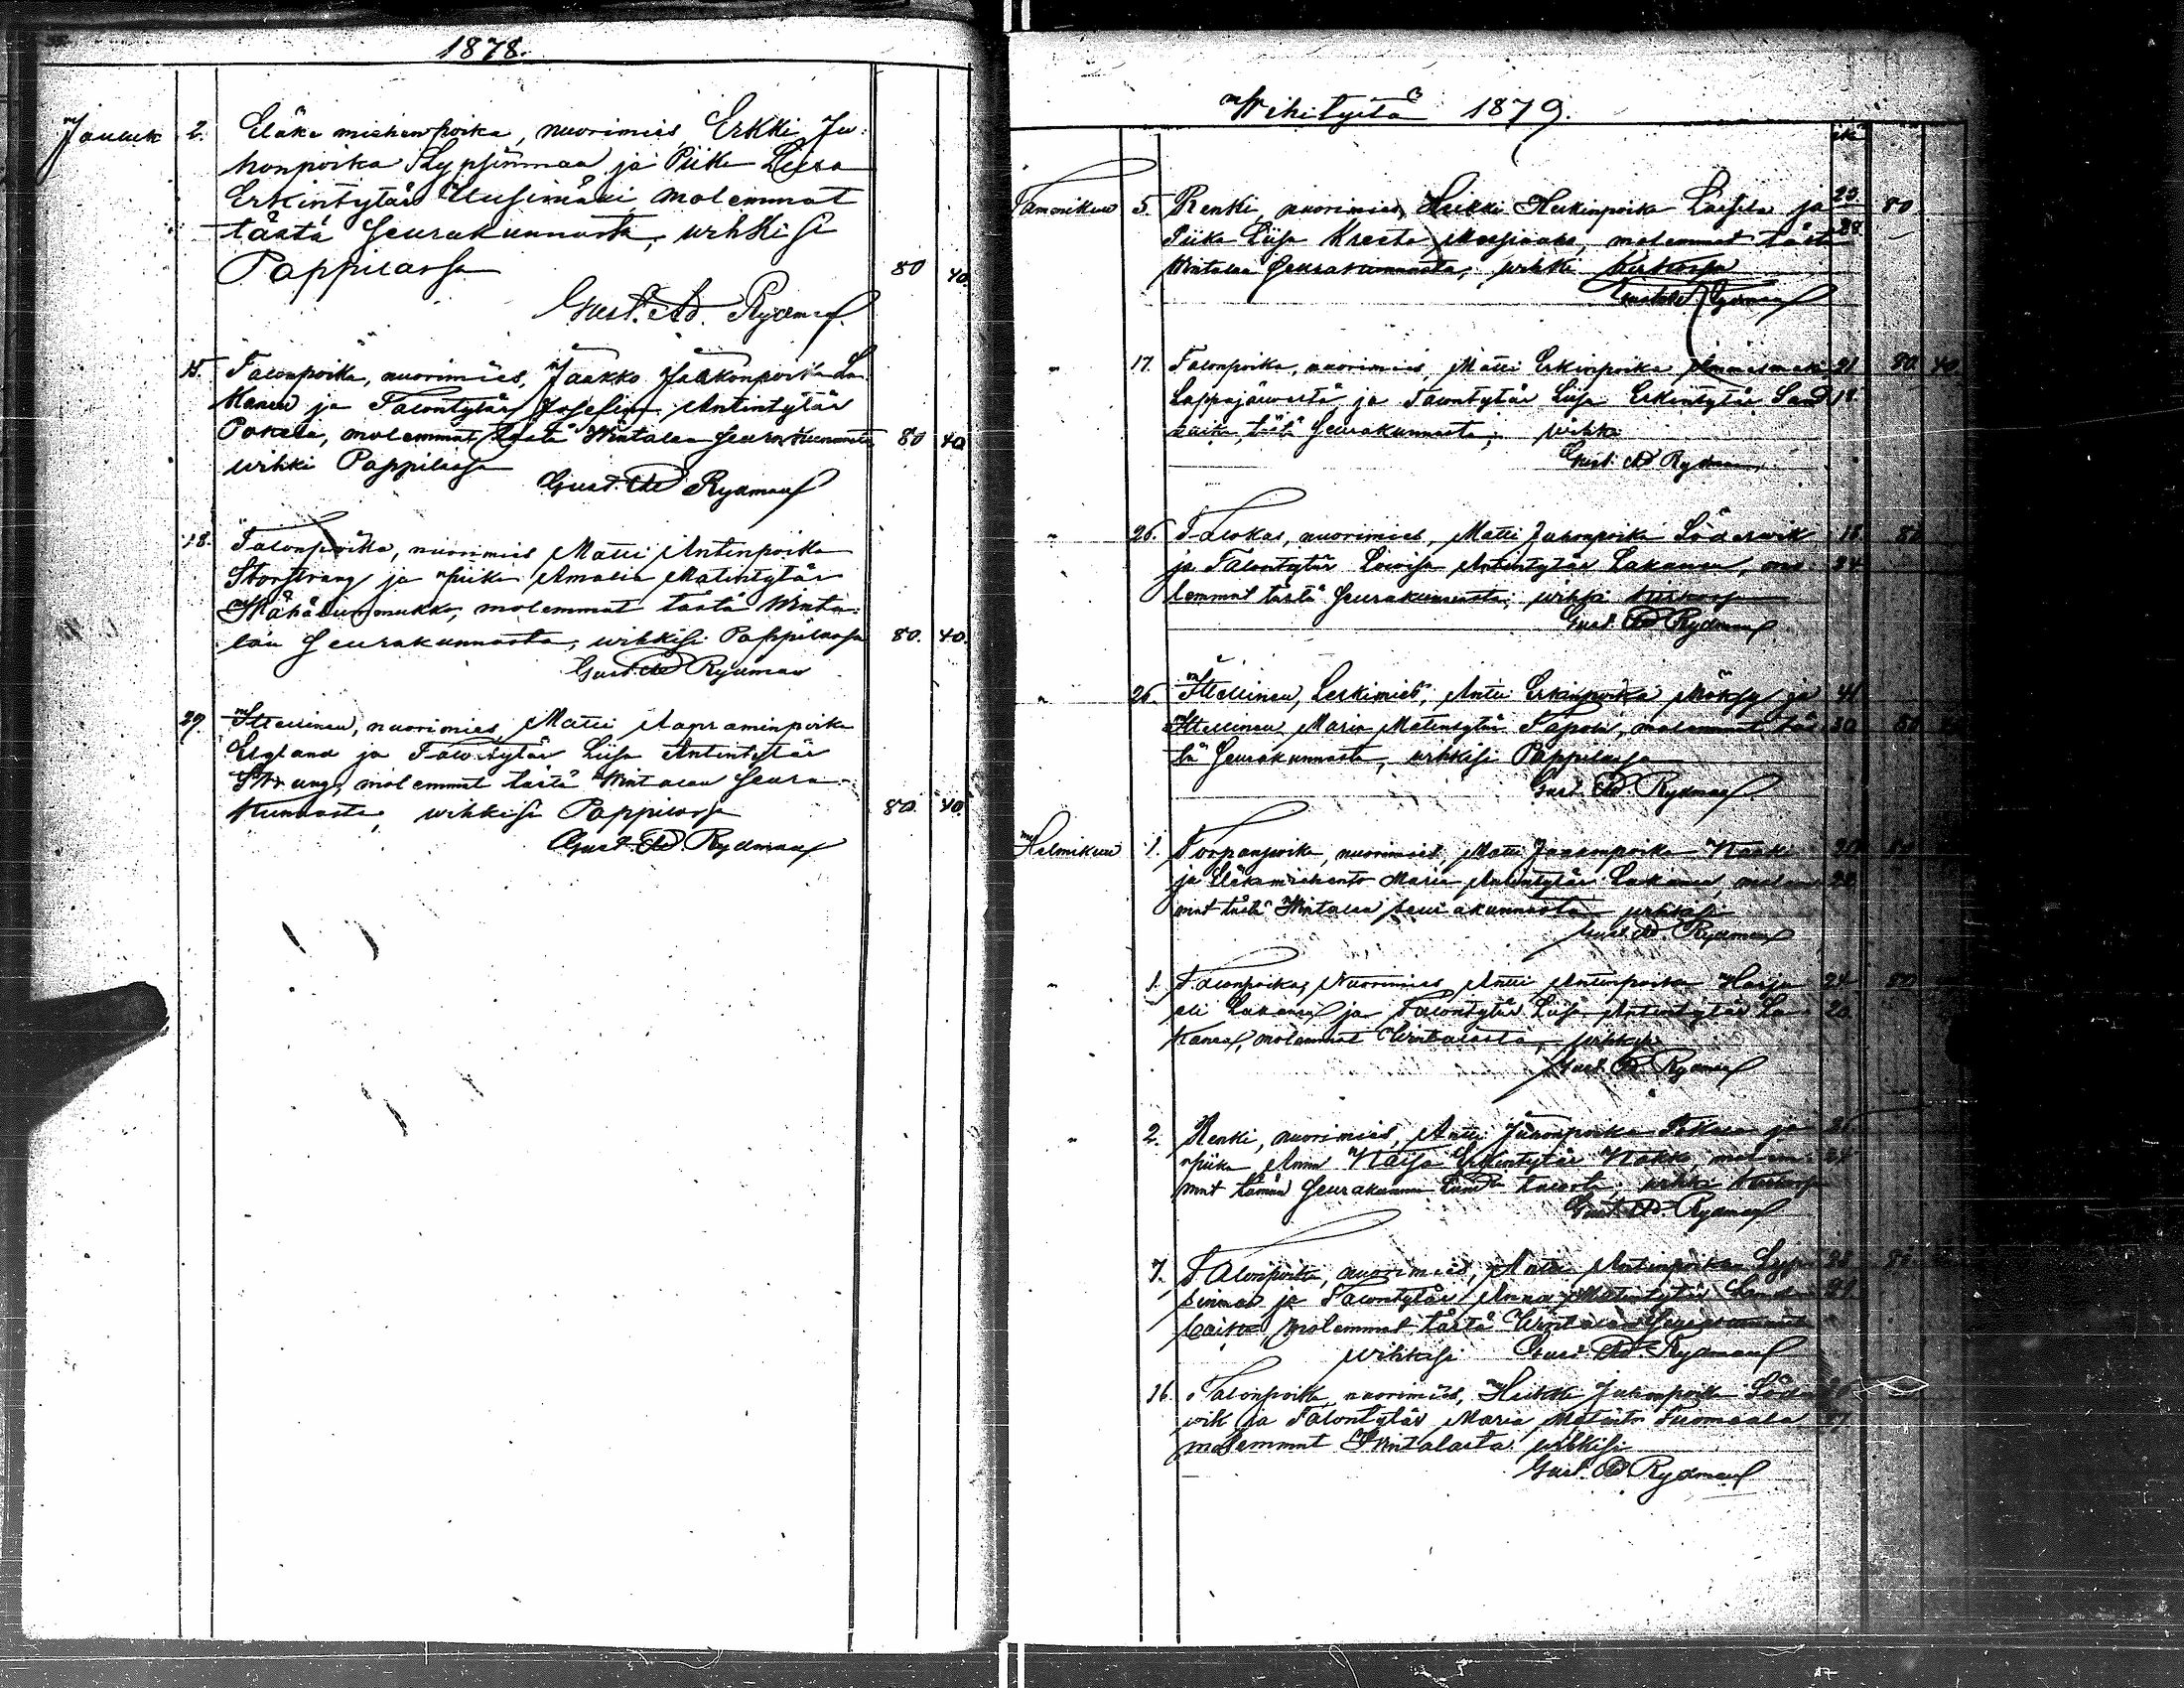 1878.
Jouluk 2. Eläke miehenpoika, nuorimies, Erkki Ju-
honpoika Lypsinmaa ja Piika Liisa
Erkintytär Uusimäki molemmat
tästä Seurakunnasta, wihkisi
Pappilassa 80 40.
Gust. Ad. Rydman
15. Talonpoika, nuorimies, Jaakko Jaakonpoika La-
kanen ja Talontytär Josefin Antintytär
Pokela, molemmat tästä Wintalan Seurakunnasta 80 40
wihki Pappilassa
Gust. Ad Rydman
18. Talonpoika, nuorimies Matti Antinpoika
Storstrang ja piika Amalia Matintytär
molemmat tästä Winta-
lan Seurakunnasta, wihkisi Pappilassa 80. 40.
Gust. Ad Rydman
29. Itsellinen, nuorimies Matti Aapraminpoika
ja Talontytär Liisa Antintytär
molemmat tästä Wintalan Seura-
kunnasta, wihkisi Pappilassa 80. 40.
Gust. Ad. Rydman
Wihityitä 1879.
ikä
Tammikuu 5. Renki, nuorimies, Heikki Heikinpoika ja 23 80
Piika Liisa Kreeta molemmat tästä 28
Wintalan Seurakunnasta, wihki kirkossa
Gust. Ad Rydman
" 17. Talonpoika, nuorimies, Matti Erkinpoika 21 80. 40.
Lappajärweltä ja Talontytär Liisa Erkintytär Sand 18
tästä Seurakunnasta, wihki
Gust. Ad Rydman
" 26. Talokas, nuorimies, Matti Juhonpoika Söderwik 18 80
ja Talontytär Lowisa Antintytär Lakanen, mo- 24
lemmat tästä Seurakunnasta, wihki kirkossa
Gust. Ad Rydman
" 26. Itsellinen, Leskimies, Antti Erkinpoika Möksy ja 41
Itsellinen Maria Matintytär molemmat täs- 30 80
tä Seurakunnasta, wihkisi Pappilassa
Gust. Ad. Rydman
Helmikuu 1. Torpanpoika, nuorimies, Matti Jaakonpoika
ja Eläkemiehentr Maria Antintytär Lakanen, molem-
mat tästä Wintalan seurakunnasta wihkisi
Gust. Ad. Rydman
" 1. Talonpoika, Nuorimies Antti Antinpoika Harju 24 80
eli Lakanen ja Talontytär Liisa Antintytär La- 20
kanen, molemmat Wintalasta, wihkisi
Gust. Ad. Rydman
" 2. Renki, nuorimies, Antti Juhonpoika ja
piika Anna Kaisa Erkintytär molem-
mat tämän Seurakunnan wihki kirkossa
Gust. Ad. Rydman
7. Talonpoika, nuorimies, Antti Antinpoika Lyp- 28
sinmaa ja Talontytär Anna Matintytär
molemmat tästä Wintalan Seurakunnasta
wihkisi Gust. Ad. Rydman
16. Talonpoika nuorimies, Heikki Juhonpoika Söder-
wik ja Talontytär Maria Matintr Tuomaala
molemmat Wintalasta wihkisi
Gust. Ad Rydman